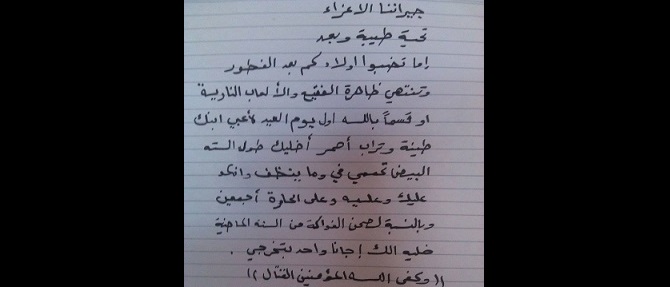 جيراننا الاعزاء
تحية طيبة وبعد
إما تضبوا اولادكم بعد الفطور
وتنتهي ظاهرة الفقيع والألعاب النارية
او قسماً بالله اول يوم العيد لأعبي ابنك
طينة وتراب أحمر أخليك طول السنه
البيضا تحممي في وما ينظف وانكد
عليك وعليه وعلى الحارة أجمعين
وبالنسبة لصحن الفواكة من السنه الماضية
خليه الك إجانا واحد بتخرجي .
((وكفى الله المؤمنين القتال))